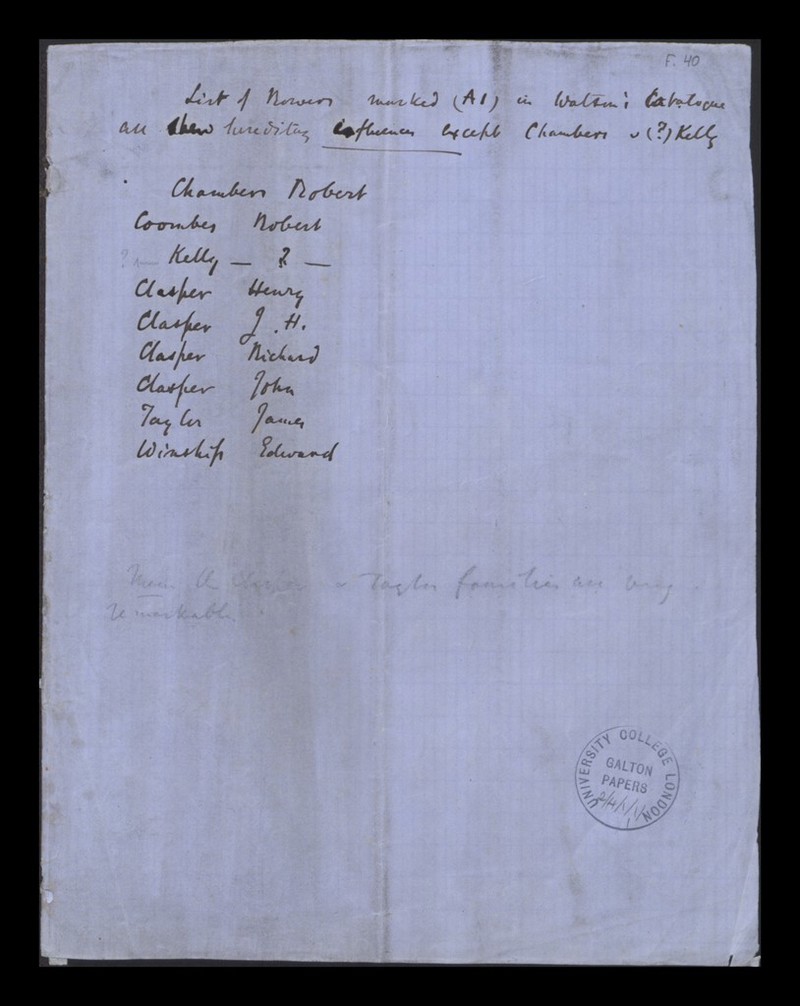 F. 40
List of Rowers marked (A1) in Watson's Catalogue
all shew hereditary influences except Chambers & (?) Kelly
Chambers Robert
Coombes Robert
? — Kelly — ? —
Clasper Henry
Clasper J. H.
Clasper Richard
Clasper John
Taylor James
Winship Edward
& Taylor families are very
remarkable.
UNIVERSITY COLLEGE LONDON
GALTON
PAPERS